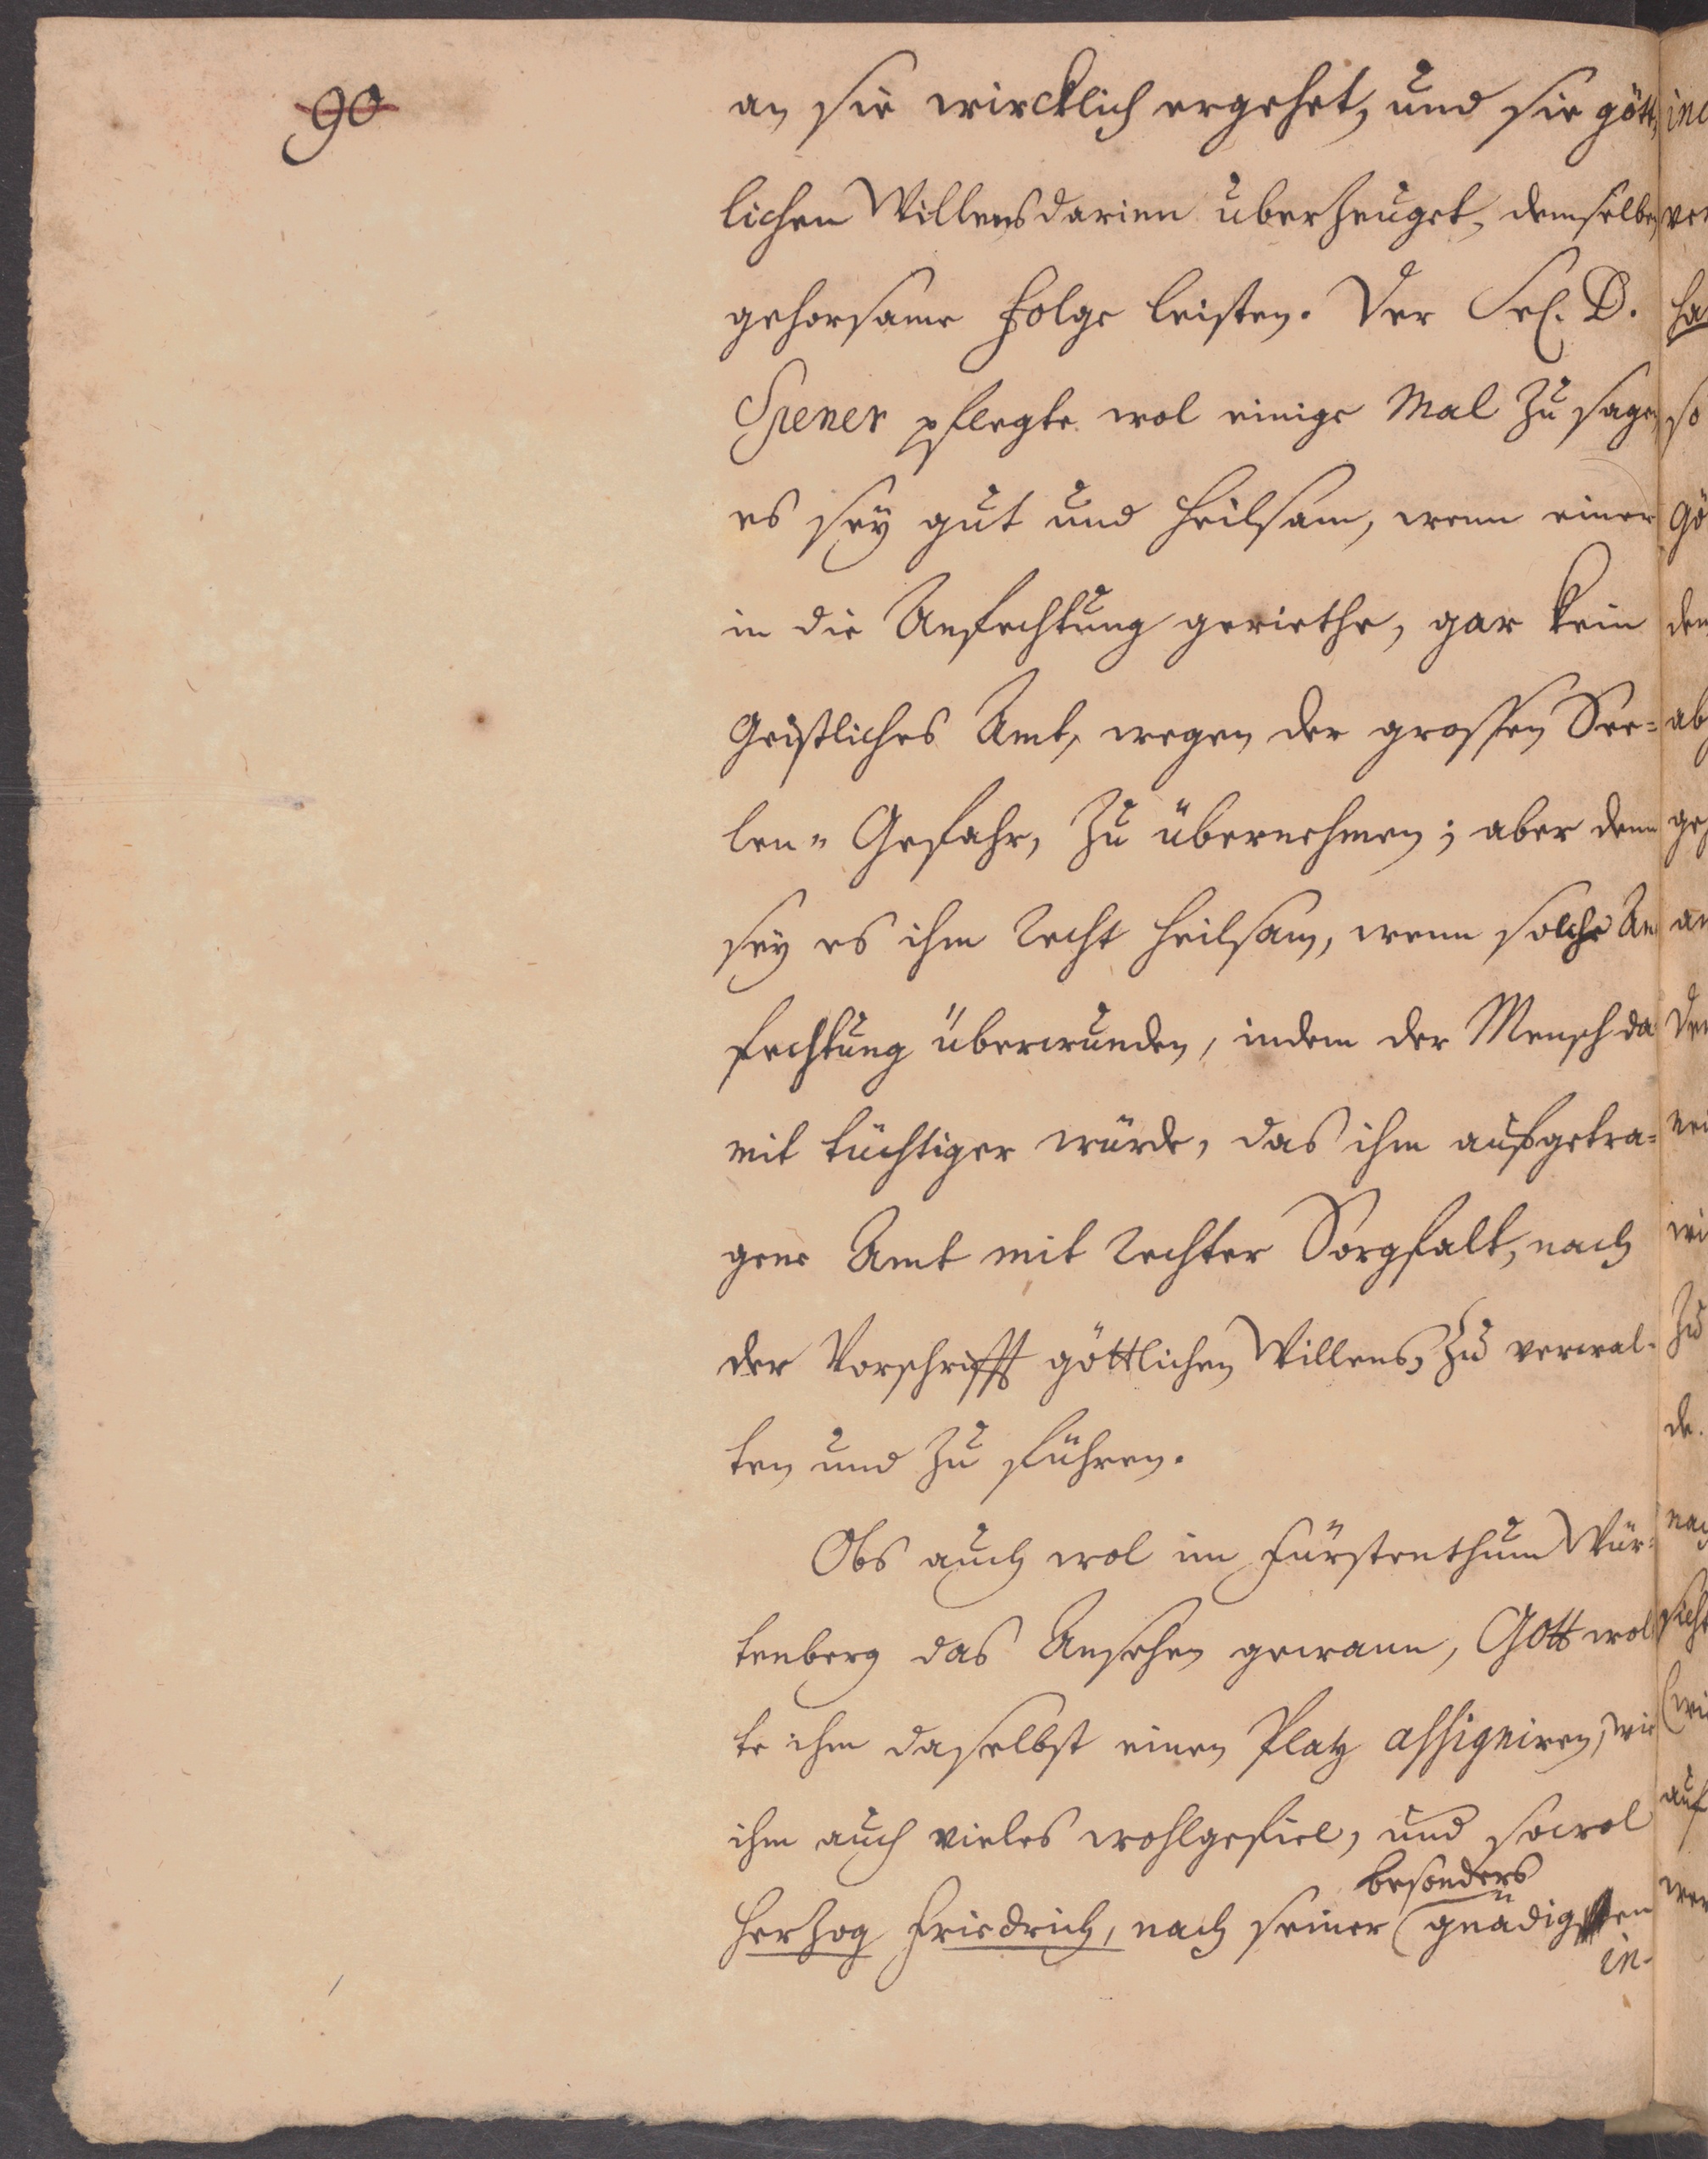 90
an sie wircklich ergehet, und sie gött-
lichen Willens darinn überzeuget, demselben
gehorsame Folge leisten. Der Sel. D.
Spener pflegte wol einige Mal zu sagen,
es sey gut und heilsam, wenn einer
in die Anfechtung geriethe, gar kein
Geistliches Amt, wegen der grossen See-
len-Gefahr, zu übernehmen; aber denn
sey es ihm recht heilsam, wenn solche An-
fechtung überwunden, indem der Mensch da-
mit tüchtiger würde, das ihm aufgetra-
gene Amt mit rechter Sorgfalt, nach
der Vorschrifft göttlichen Willens, zu verwal-
ten und zu führen.
Obs auch wol im Fürstenthum Wür-
tenberg das Ansehen gewann, Gott wol-
te ihm daselbst einen Platz assigniren, wie
ihm auch vieles wohlgefiel, und sowol
besonders
Herzog Friedrich, nach seiner gnädigen
in-